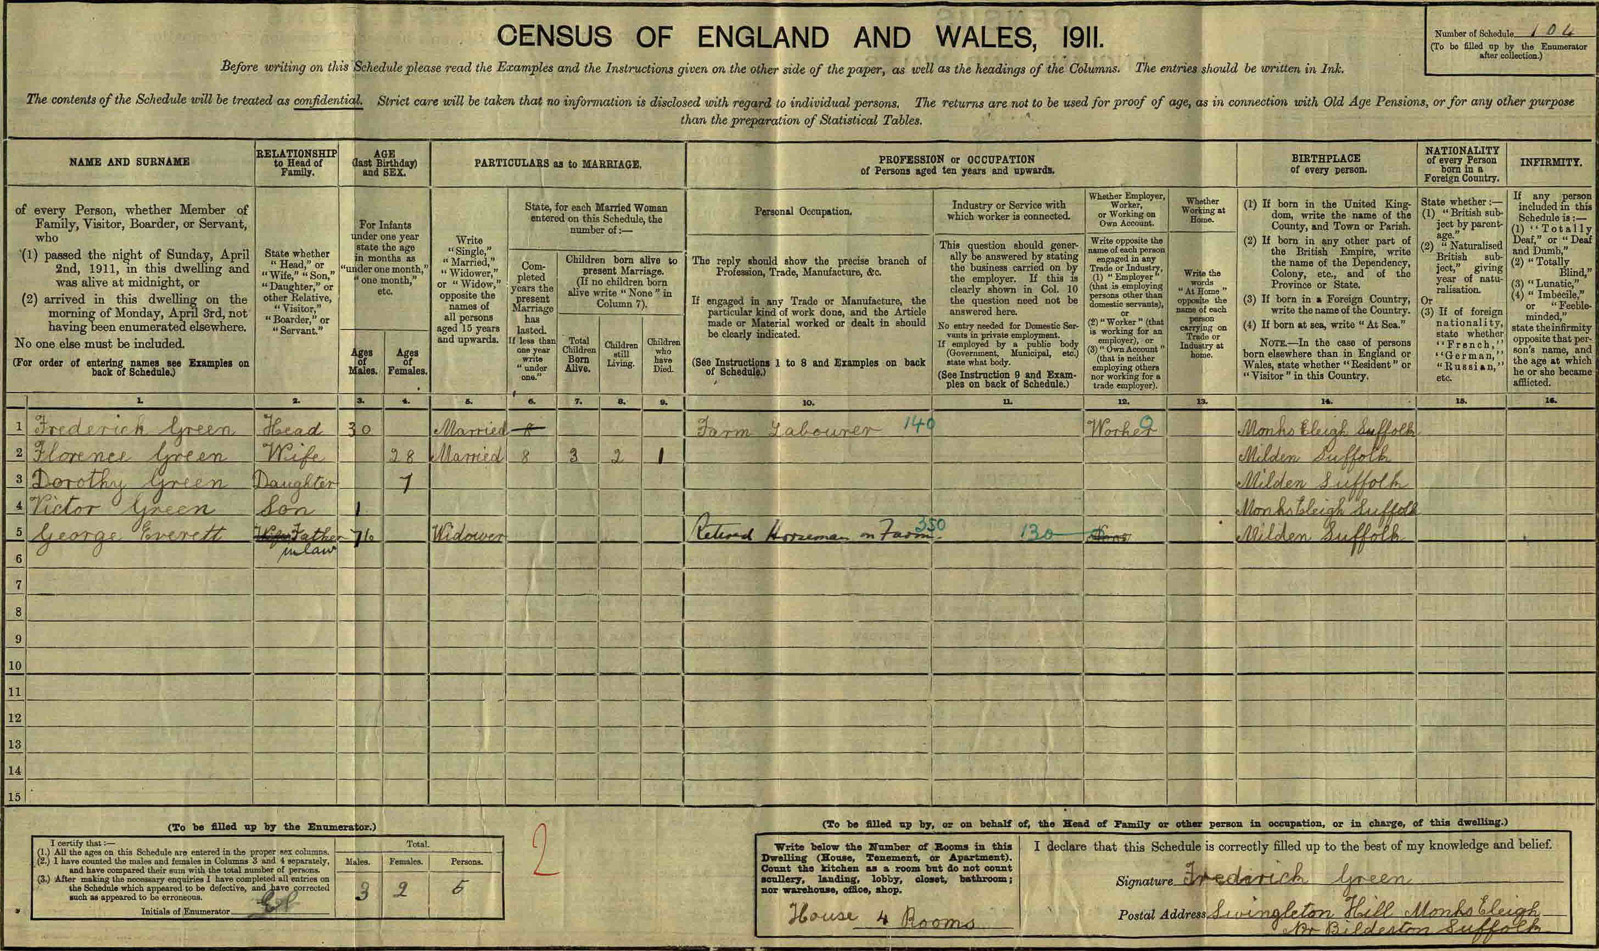 CENSUS OF ENGLAND AND WALES, 1911.
Number of Schedule 104
(To be filled up by the Enumerator
after collection.)
Before writing on this Schedule please read the Examples and the Instructions given on the other side of the paper, as well as the headings of the Columns. The entries should be written in Ink.
The contents of the Schedule will be treated as confidential. Strict care will be taken that no information is disclosed with regard to individual persons. The returns are not to be used for proof of age, as in connection with Old Age Pensions, or for any other purpose
than the preparation of Statistical Tables.
NAME AND SURNAME
of every Person, whether Member of
Family, Visitor, Boarder, or Servant,
who
(1) passed the night of Sunday, April
2nd, 1911, in this dwelling and
was alive at midnight, or
(2) arrived in this dwelling on the
morning of Monday, April 3rd, not
having been enumerated elsewhere.
No one else must be included.
(For order of entering names see Examples on
back of Schedule.)
RELATIONSHIP
to Head of
Family.
State whether
"Head," or
"Wife," "Son,"
"Daughter," or
other Relative,
"Visitor,"
"Boarder," or
"Servant."
AGE
(last Birthday)
and SEX.
For Infants
under one year
state the age
in months as
"under one month,"
"one month,"
etc.
Ages
of
Males.
Ages
of
Females.
PARTICULARS as to MARRIAGE.
Write
"Single,"
"Married,"
"Widower,"
or "Widow,"
opposite the
names of
all persons
aged 15 years
and upwards.
State, for each Married Woman
entered on this Schedule, the
number of:—
Completed
years the
present
Marriage
has
lasted.
If less than
one year
write
"under
one."
Children born alive to
present Marriage.
(If no children born
alive write "None" in
Column 7).
Total
Children
Born
Alive.
Children
still
Living.
Children
who
have
Died.
PROFESSION or OCCUPATION
of Persons aged ten years and upwards.
Personal Occupation.
The reply should show the precise branch of
Profession, Trade, Manufacture, &c.
If engaged in any Trade or Manufacture, the
particular kind of work done, and the Article
made or Material worked or dealt in should
be clearly indicated.
(See Instructions 1 to 8 and Examples on back
of Schedule.)
Industry or Service with
which worker is connected.
This question should gener-
ally be answered by stating
the business carried on by
the employer. If this is
clearly shown in Col. 10
the question need not be
answered here.
No entry needed for Domestic Ser-
vants in private employment.
If employed by a public body
(Government, Municipal, etc.)
state what body.
(See Instruction 9 and Exam-
ples on back of Schedule.)
Whether Employer,
Worker,
or Working on
Own Account.
Write opposite the
name of each person
engaged in any
Trade or Industry,
(1) "Employer"
(that is employing
persons other than
domestic servants),
or
(2) "Worker" (that
is working for an
employer), or
(3) "Own Account"
(that is neither
employing others
nor working for a
trade employer).
Whether
Working at
Home.
Write the
words
"At Home"
opposite the
name of each
person
carrying on
Trade or
Industry at
home.
BIRTHPLACE
of every person.
(1) If born in the United King-
dom, write the name of the
County, and Town or Parish.
(2) If born in any other part of
the British Empire, write
the name of the Dependency,
Colony, etc., and of the
Province or State.
(3) If born in a Foreign Country,
write the name of the Country.
(4) If born at sea, write "At Sea."
NOTE.—In the case of persons
born elsewhere than in England or
Wales, state whether "Resident" or
"Visitor" in this Country.
NATIONALITY
of every Person
born in a
Foreign Country.
State whether:—
(1) "British sub-
ject by parent-
age."
(2) "Naturalised
British sub-
ject," giving
year of natu-
ralisation.
Or
(3) If of foreign
nationality,
state whether
"French,"
"German,"
"Russian,"
etc.
INFIRMITY.
If any person
included in this
Schedule is:—
(1) "Totally
Deaf," or "Deaf
and Dumb,"
(2) "Totally
Blind,"
(3) "Lunatic,"
(4) "Imbecile,"
or "Feeble-
minded,"
state the infirmity
opposite that per-
son's name, and
the age at which
he or she became
afflicted.
1. 2. 3. 4. 5. 6. 7. 8. 9. 10. 11. 12. 13. 14. 15. 16.
1 Frederick Green Head 30 Married 8 Farm Labourer 140 Worker Monks Eleigh Suffolk
2 Florence Green Wife 28 Married 8 3 2 1 Milden Suffolk
3 Dorothy Green Daughter 7 Milden Suffolk
4 Victor Green Son 1 Monks Eleigh Suffolk
5 George Everett Father in law 76 Widower Retired Horseman on Farm 350 130 Milden Suffolk
6
7
8
9
10
11
12
13
14
15
(To be filled up by the Enumerator.)
I certify that:—
(1.) All the ages on this Schedule are entered in the proper sex columns.
(2.) I have counted the males and females in Columns 3 and 4 separately,
and have compared their sum with the total number of persons.
(3.) After making the necessary enquiries I have completed all entries on
the Schedule which appeared to be defective, and have corrected
such as appeared to be erroneous.
Initials of Enumerator
Total.
Males. Females. Persons.
3 2 5
2
(To be filled up by, or on behalf of, the Head of Family or other person in occupation, or in charge, of this dwelling.)
Write below the Number of Rooms in this
Dwelling (House, Tenement, or Apartment).
Count the kitchen as a room but do not count
scullery, landing, lobby, closet, bathroom;
nor warehouse, office, shop.
House 4 Rooms
I declare that this Schedule is correctly filled up to the best of my knowledge and belief.
Signature Frederick Green
Postal Address Swingleton Hill Monks Eleigh
Nr Bilderston Suffolk